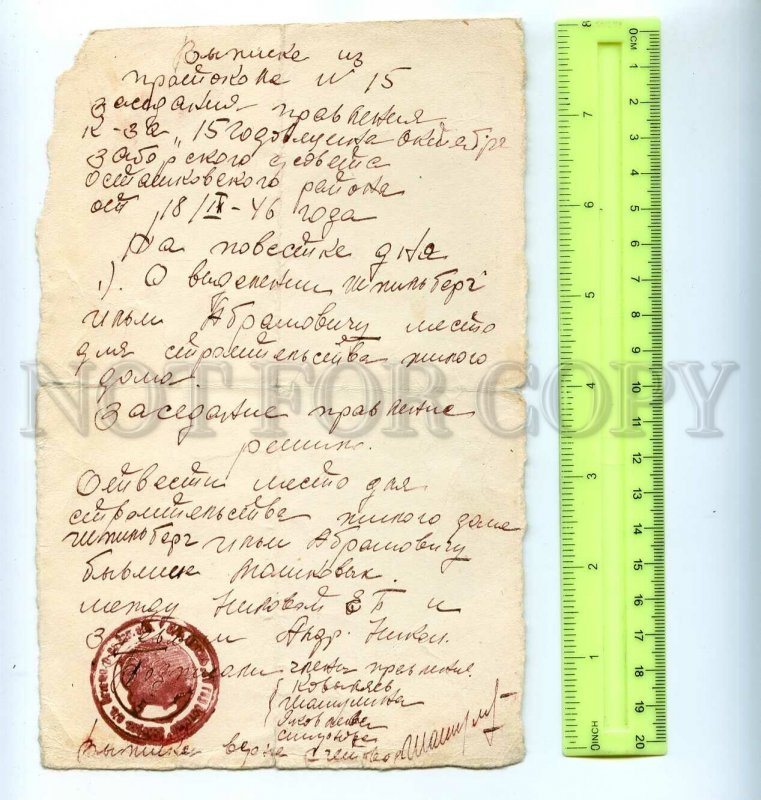 Выписка из
протокола N 15
заседания правления
к-за "15 годовщина октября
Заборского с/совета
Осташковского района
от 18/IV-46 года
На повестке дня
1). О выделении Шпильберг
Илье Абрамовичу место
для строительства жилого
дома.
Заседание правление
решило.
Отвести место для
строительства жилого дома
Шпильберг Илье Абрамовичу
между и
Андр. Никол.
члены правления.
Шашулина
Яковлева
Выписка верна Счетовод
NOT FOR COPY
0CM 1 2 3 4 5 6 7 8 9 10 11 12 13 14 15 16 17 18 19 20
8 7 6 5 4 3 2 1 0INCH